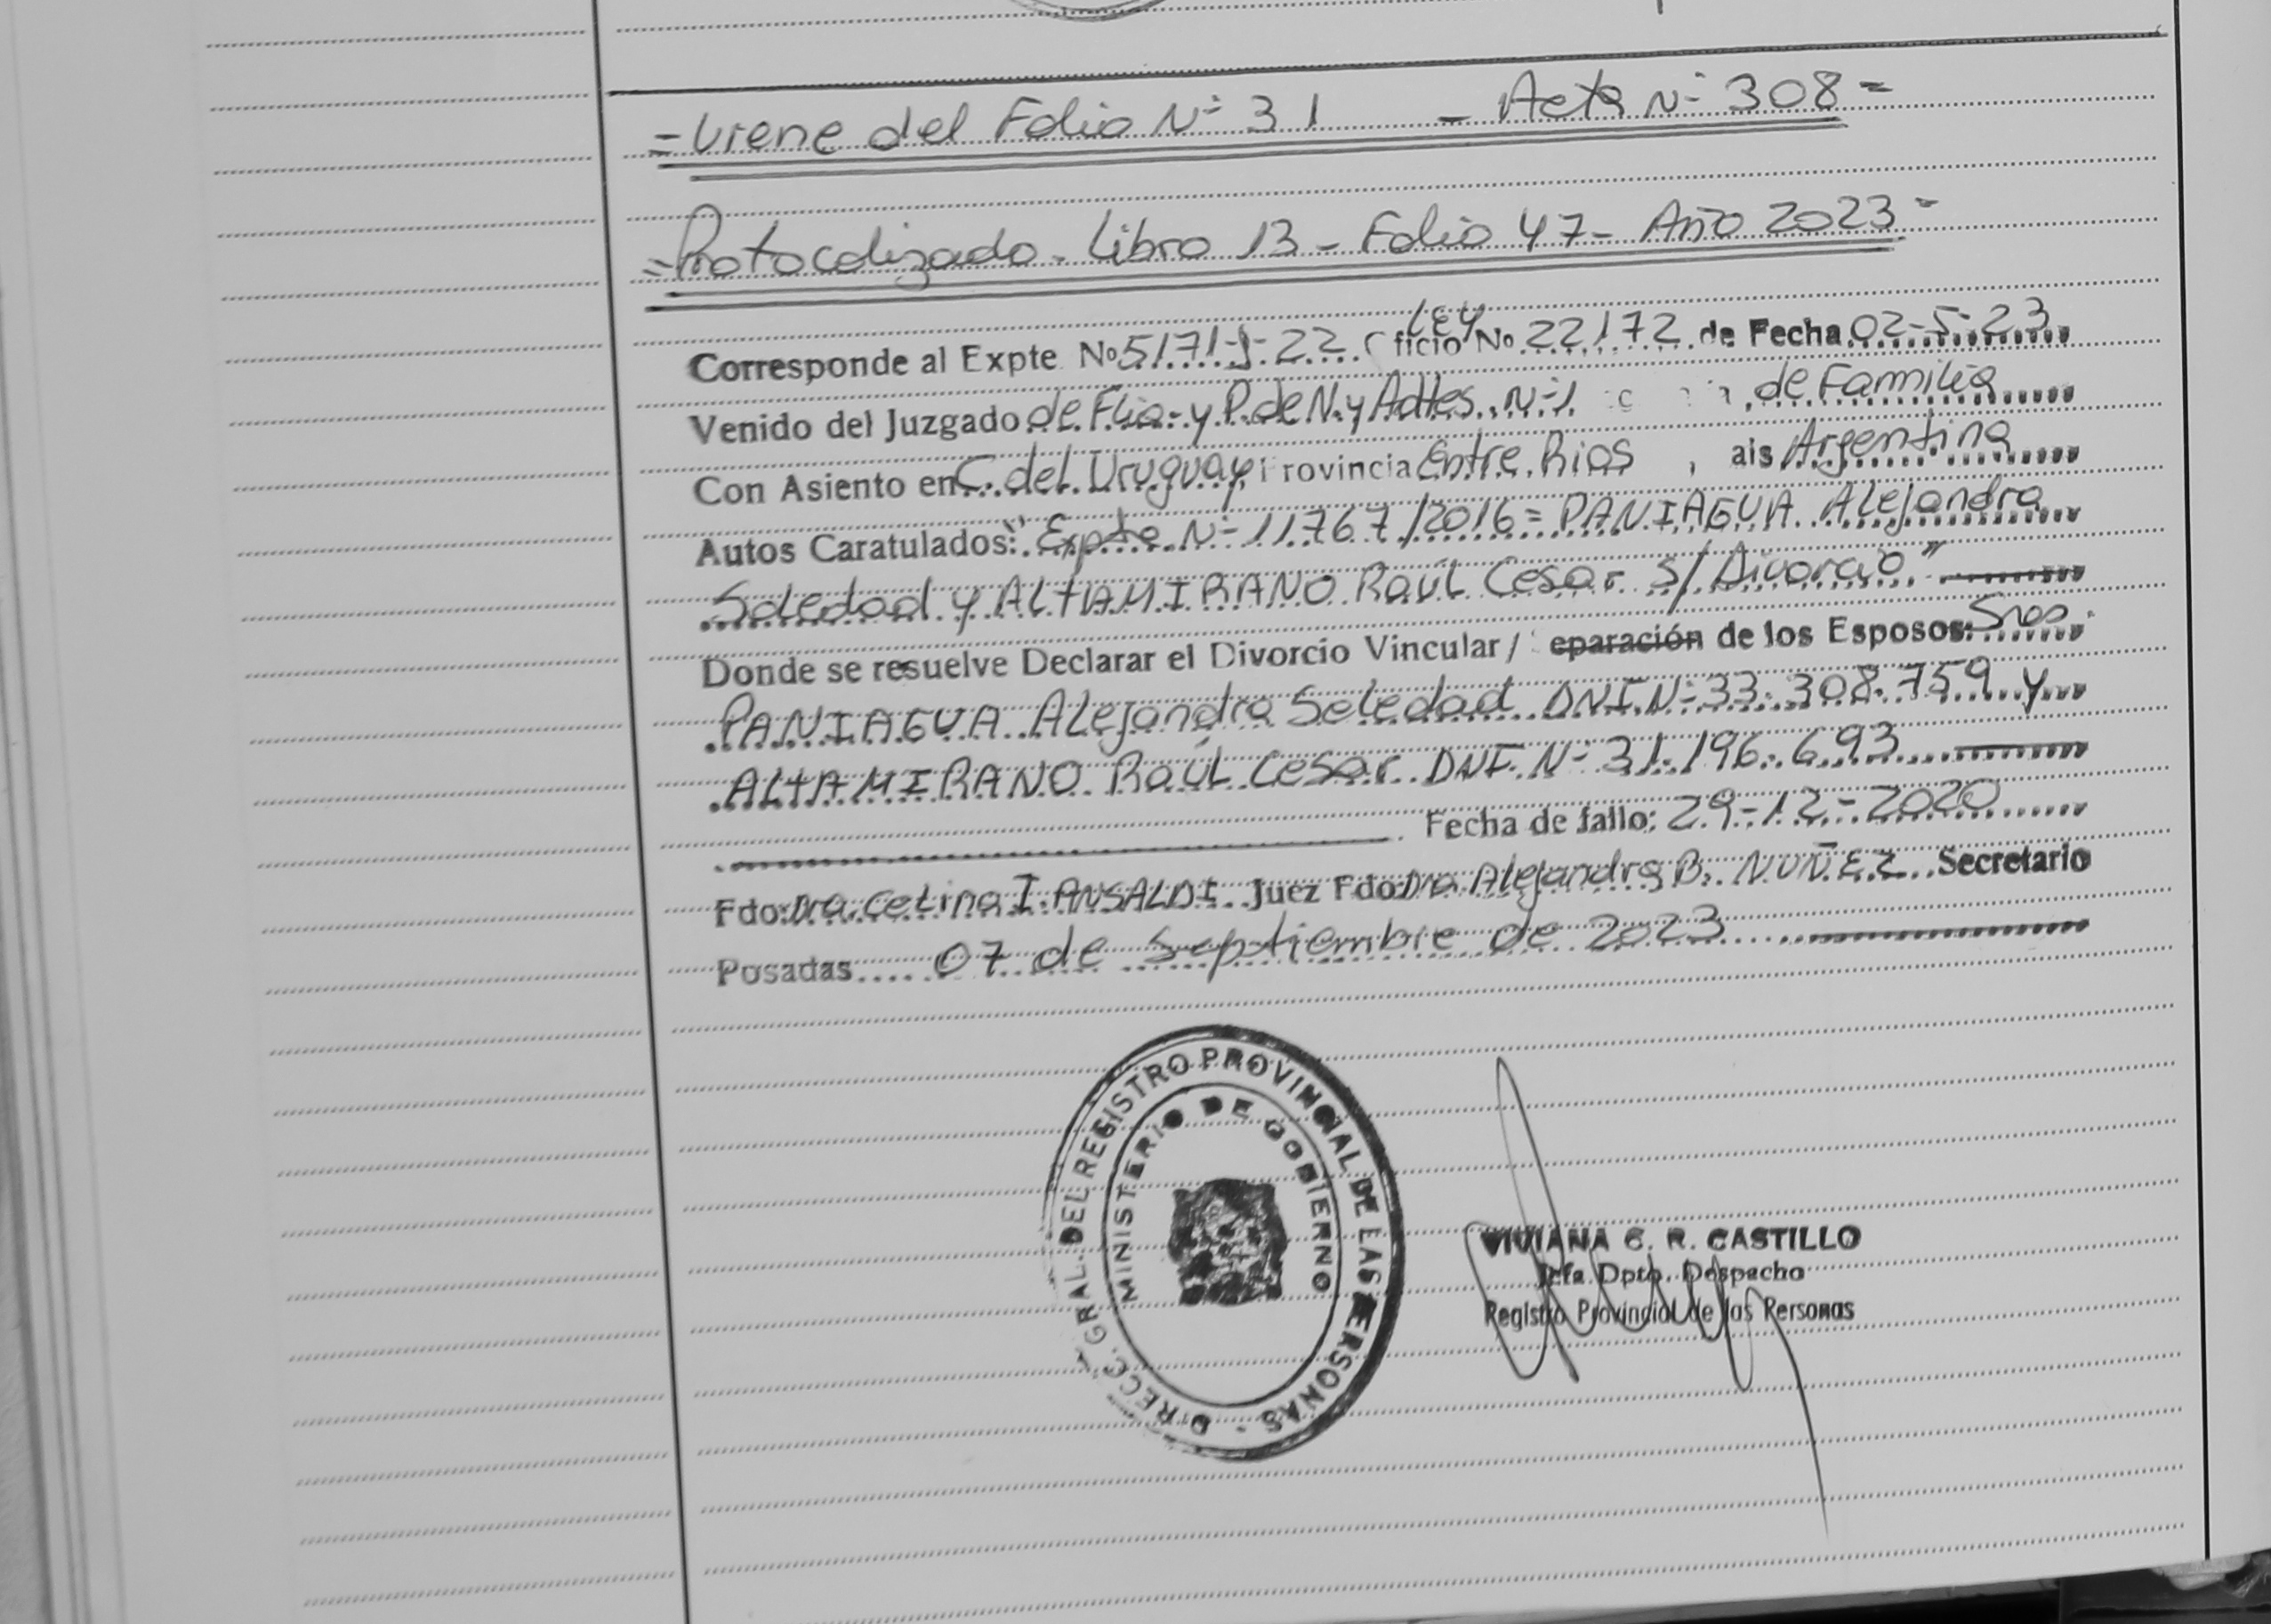 = Viene del Folio Nº 31 - Acta Nº 308 =
= Protocolizado - Libro 13 - Folio 47 - Año 2023 =
Corresponde al Expte Nº 5171-J-22 Oficio LEY Nº 22172 de Fecha 02-5-23
Venido del Juzgado de Flia. y P. de N. y Adtes. Nº 1 de Familia
Con Asiento en C. del Uruguay Provincia Entre Rios, ais Argentina
Autos Caratulados: "Expte Nº 11767/2016 = PANIAGUA Alejandra
Soledad y ALTAMIRANO Raúl Cesar s/ Divorcio"
Donde se resuelve Declarar el Divorcio Vincular / eparación de los Esposos: Sres.
PANIAGUA Alejandra Soledad DNI Nº 33.308.759 y
ALTAMIRANO Raúl Cesar DNI Nº 31.196.693
Fecha de fallo: 29-12-2020
Fdo: Dra. Celina I. ANSALDI Juez Fdo: Dra Alejandra B. NUÑEZ Secretario
Posadas 07 de Septiembre de 2023
DIRECC. GRAL. DEL REGISTRO PROVINCIAL DE LAS PERSONAS -
MINISTERIO DE GOBIERNO
VIVIANA C. R. CASTILLO
Jefa Dpto. Despacho
Registro Provincial de las Personas